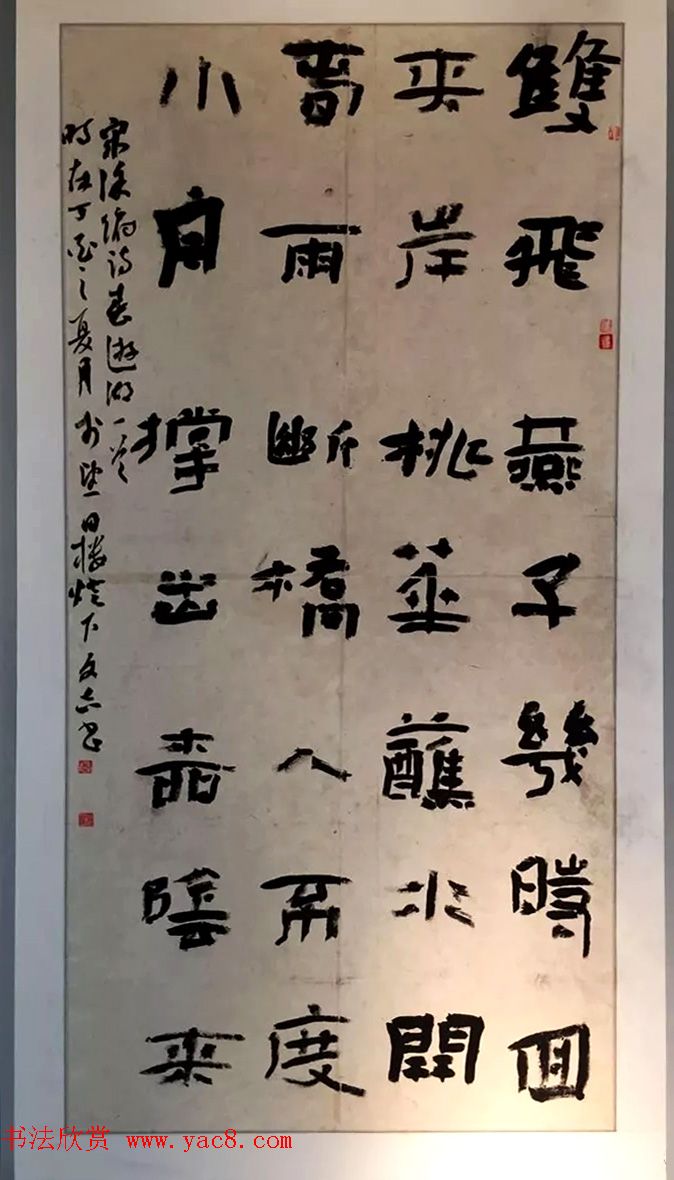 雙飛燕子幾時回
夾岸桃華蘸水開
春雨斷橋人不度
小舟撐出柳陰來
宋徐俯詩春遊湖一首
時在丁酉之夏月於望日樓燈下文志書
书法欣赏 www.yac8.com